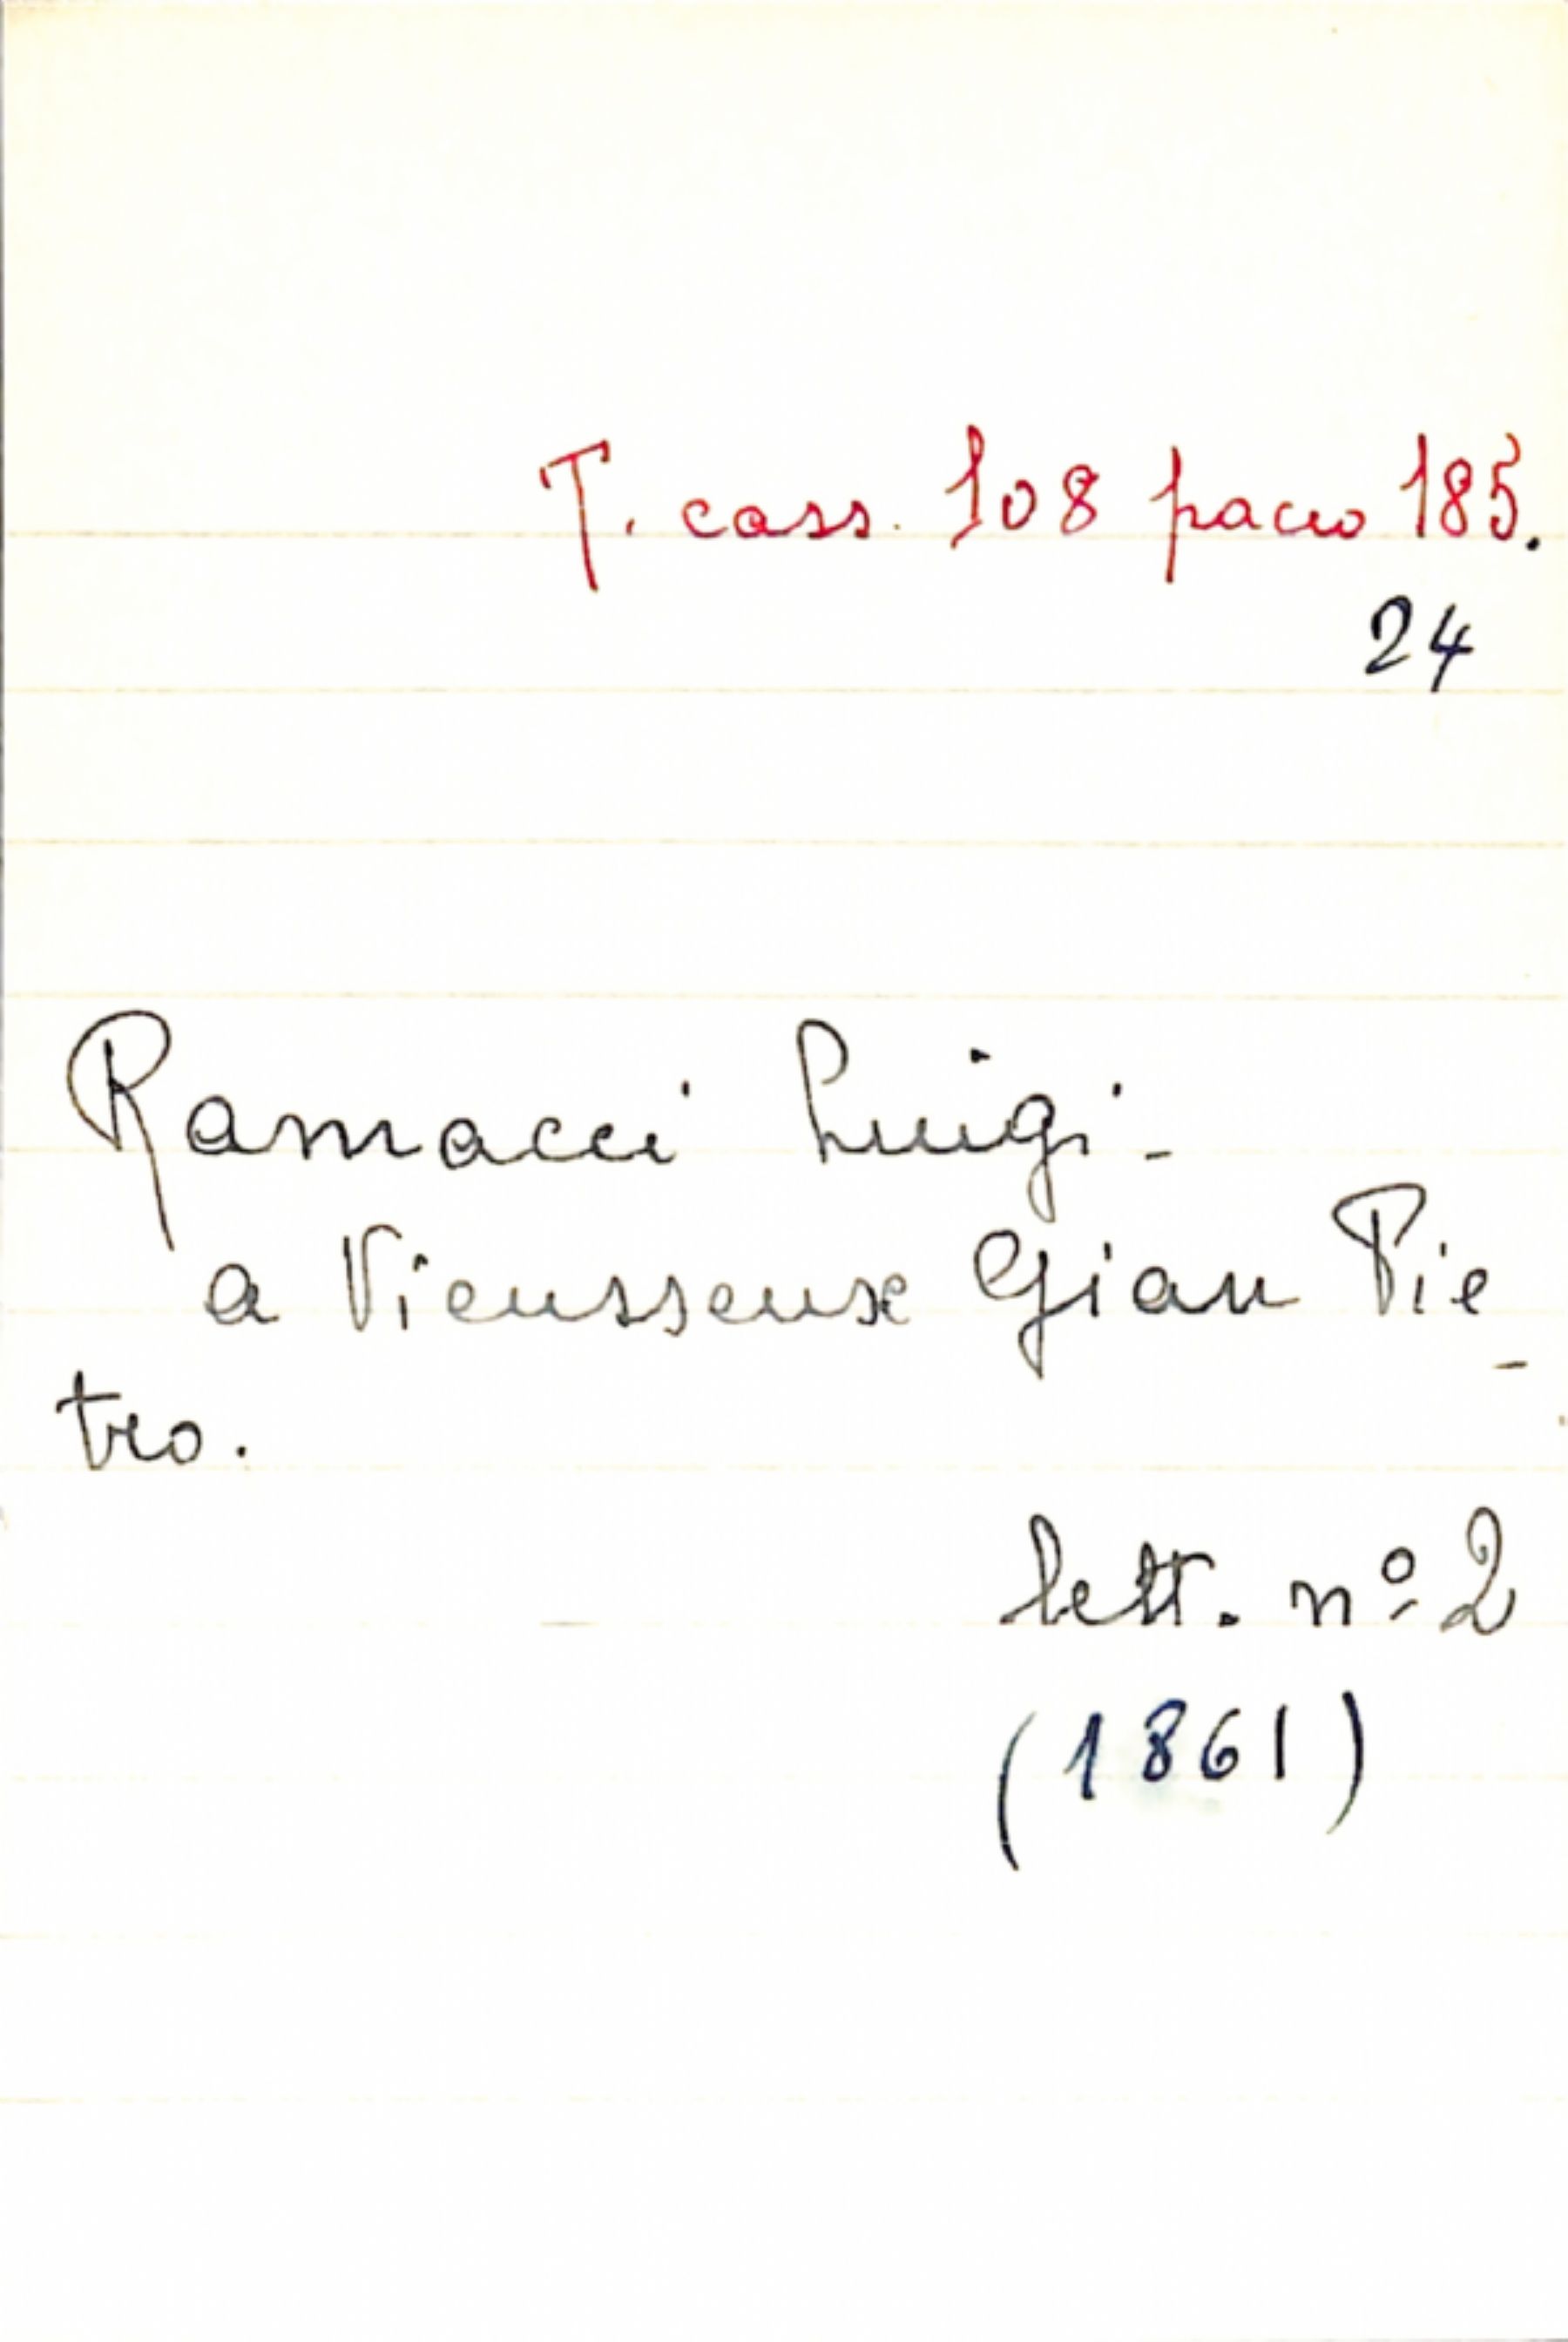 T. cass. 108 pacco 185.
24
Ramacci Luigi -
a Vieusseux Gian Pie-
tro.
lett. nº 2
(1861)